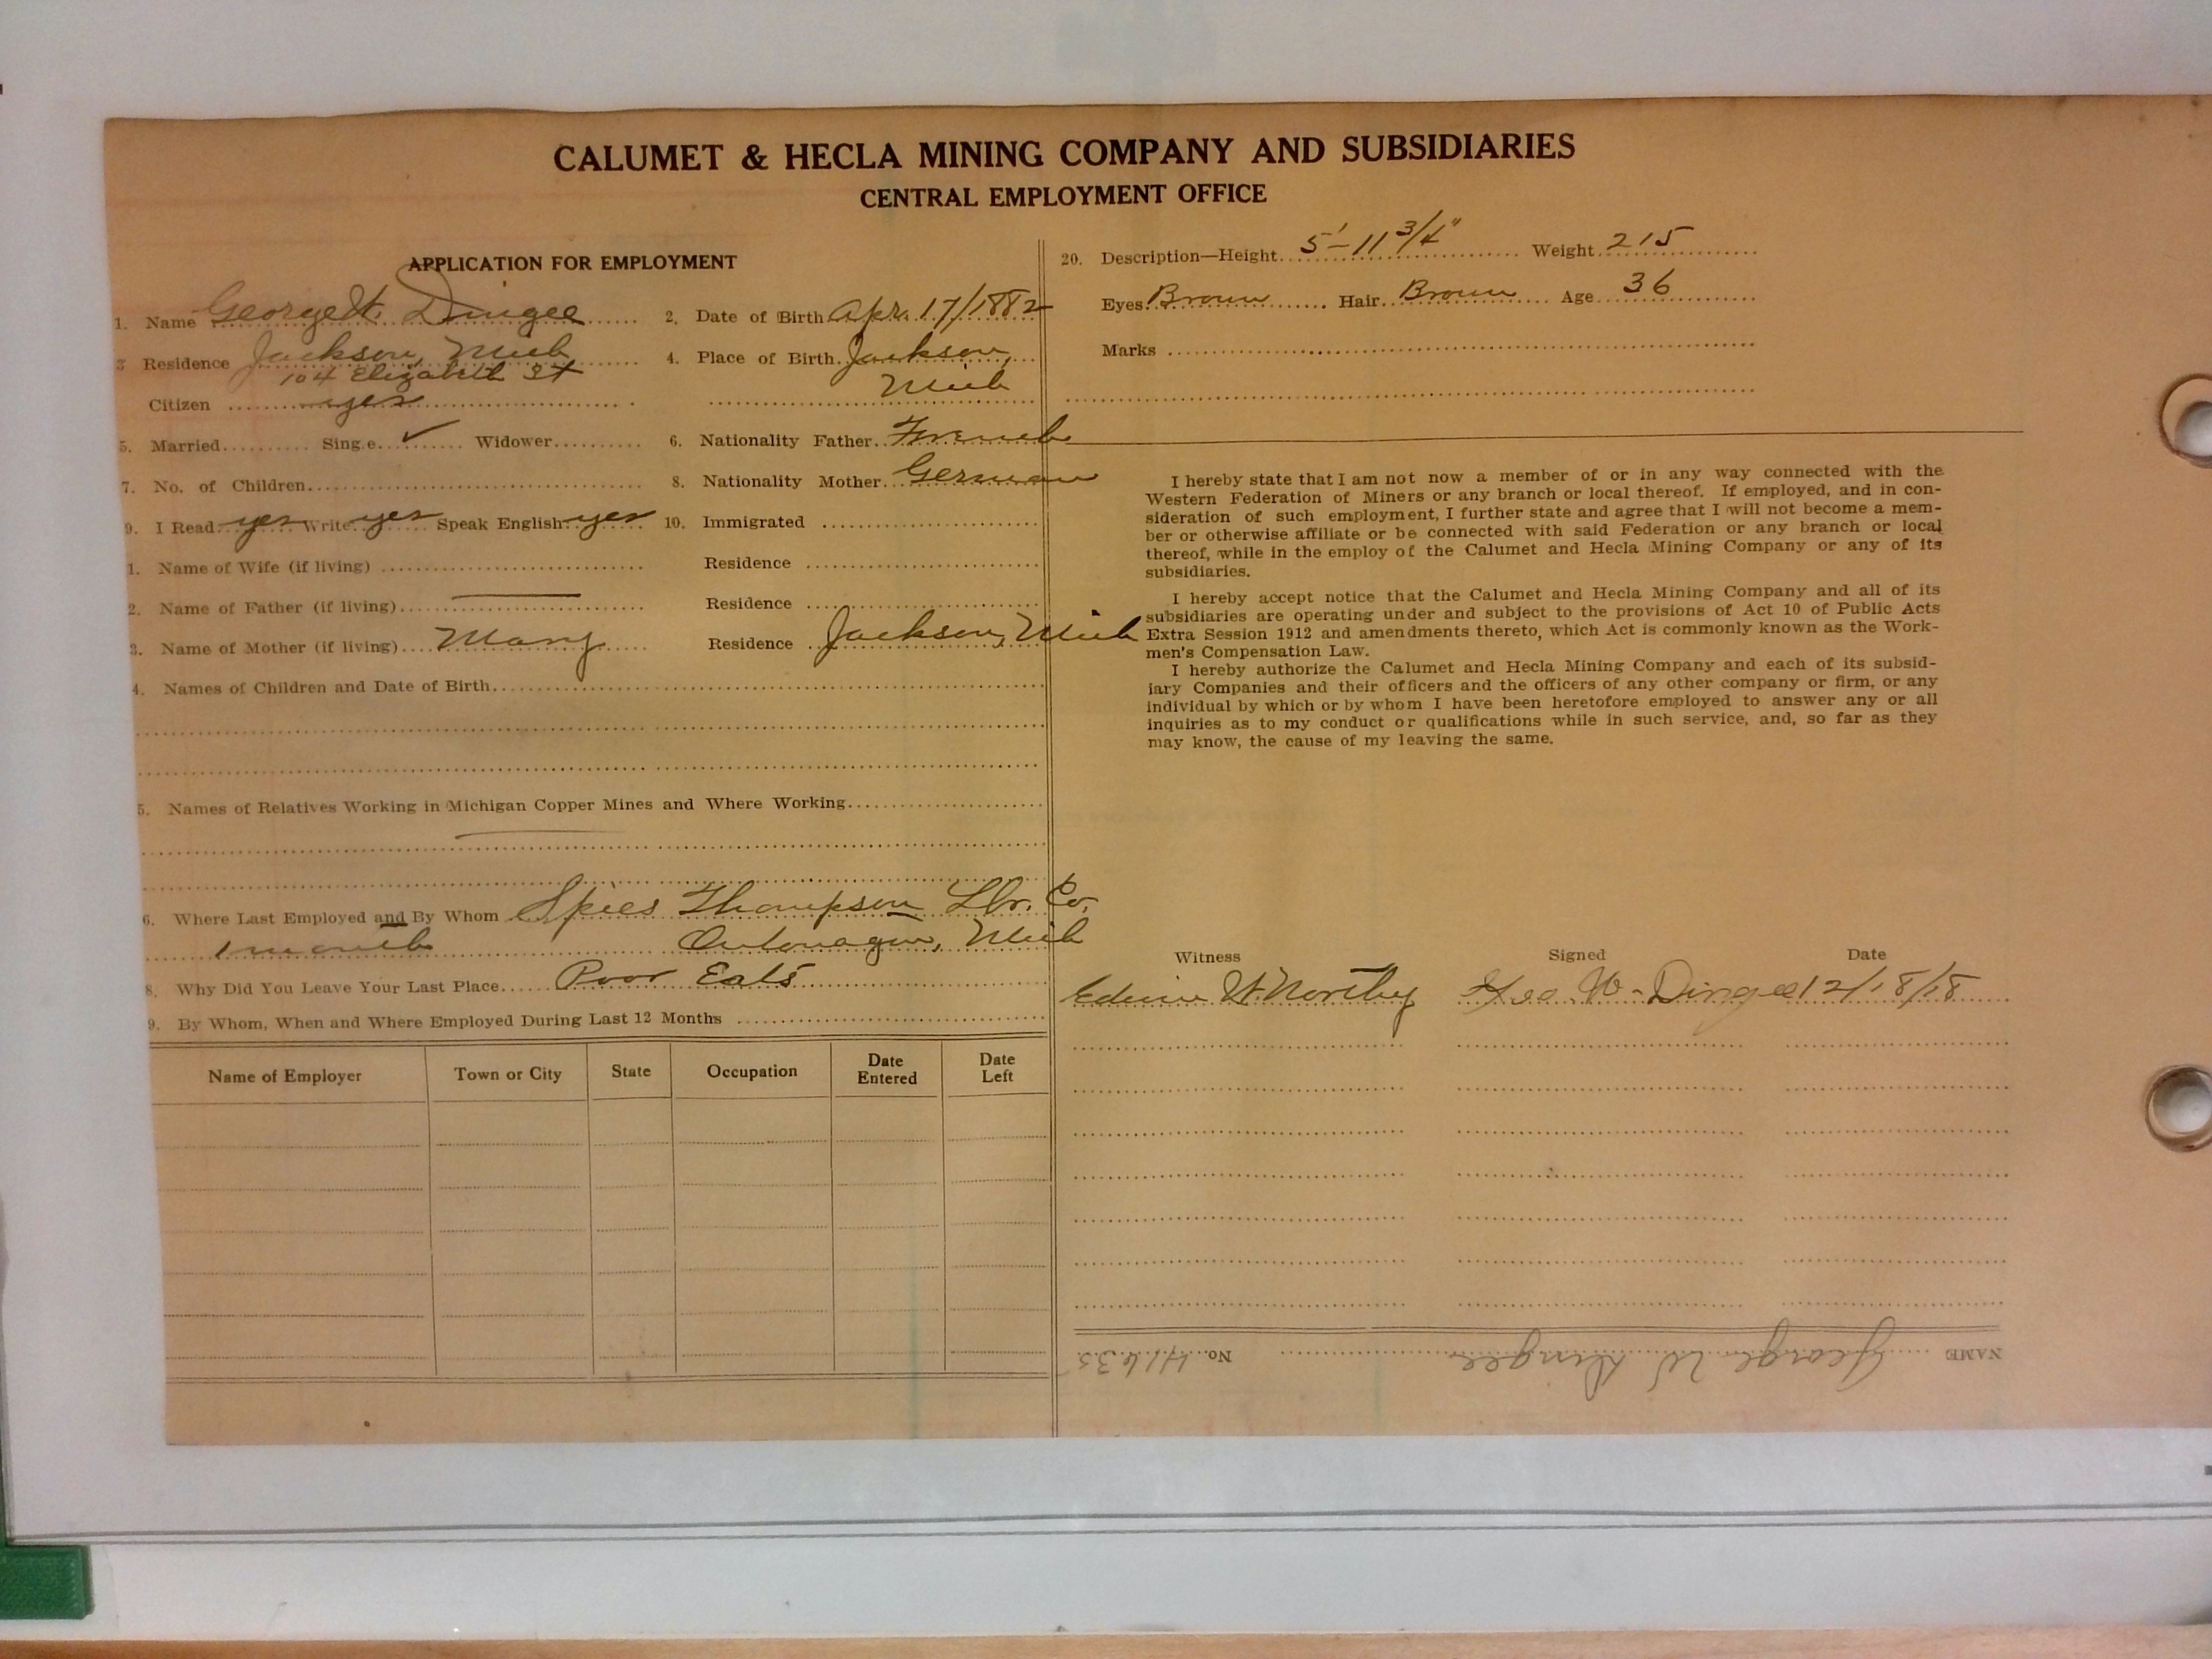 CALUMET & HECLA MINING COMPANY AND SUBSIDIARIES
CENTRAL EMPLOYMENT OFFICE
APPLICATION FOR EMPLOYMENT
1. Name George W. Dingee 2. Date of Birth Apr. 17/1882
3 Residence Jackson, Mich 4. Place of Birth Jackson,
104 Elizabeth St Mich
Citizen yes
5. Married Sing e ✓ Widower 6. Nationality Father French
7. No. of Children 8. Nationality Mother German
9. I Read yes Write yes Speak English yes 10. Immigrated
1. Name of Wife (if living) Residence
2. Name of Father (if living) — Residence
3. Name of Mother (if living) Mary Residence Jackson, Mich
4. Names of Children and Date of Birth
5. Names of Relatives Working in Michigan Copper Mines and Where Working
6. Where Last Employed and By Whom Spies Thompson Lbr. Co.
1 month Ontonagon, Mich
8. Why Did You Leave Your Last Place Poor Eats
9. By Whom, When and Where Employed During Last 12 Months
Name of Employer Town or City State Occupation Date Entered Date Left
20. Description—Height 5'-11 3/4" Weight 215
Eyes Brown Hair Brown Age 36
Marks
I hereby state that I am not now a member of or in any way connected with the
Western Federation of Miners or any branch or local thereof. If employed, and in con-
sideration of such employment, I further state and agree that I will not become a mem-
ber or otherwise affiliate or be connected with said Federation or any branch or local
thereof, while in the employ of the Calumet and Hecla Mining Company or any of its
subsidiaries.
I hereby accept notice that the Calumet and Hecla Mining Company and all of its
subsidiaries are operating under and subject to the provisions of Act 10 of Public Acts
Extra Session 1912 and amendments thereto, which Act is commonly known as the Work-
men's Compensation Law.
I hereby authorize the Calumet and Hecla Mining Company and each of its subsid-
iary Companies and their officers and the officers of any other company or firm, or any
individual by which or by whom I have been heretofore employed to answer any or all
inquiries as to my conduct or qualifications while in such service, and, so far as they
may know, the cause of my leaving the same.
Witness Signed Date
Edwin W. Northey Geo W-Dingee 12/18/18
NAME George W Dingee No. 41635